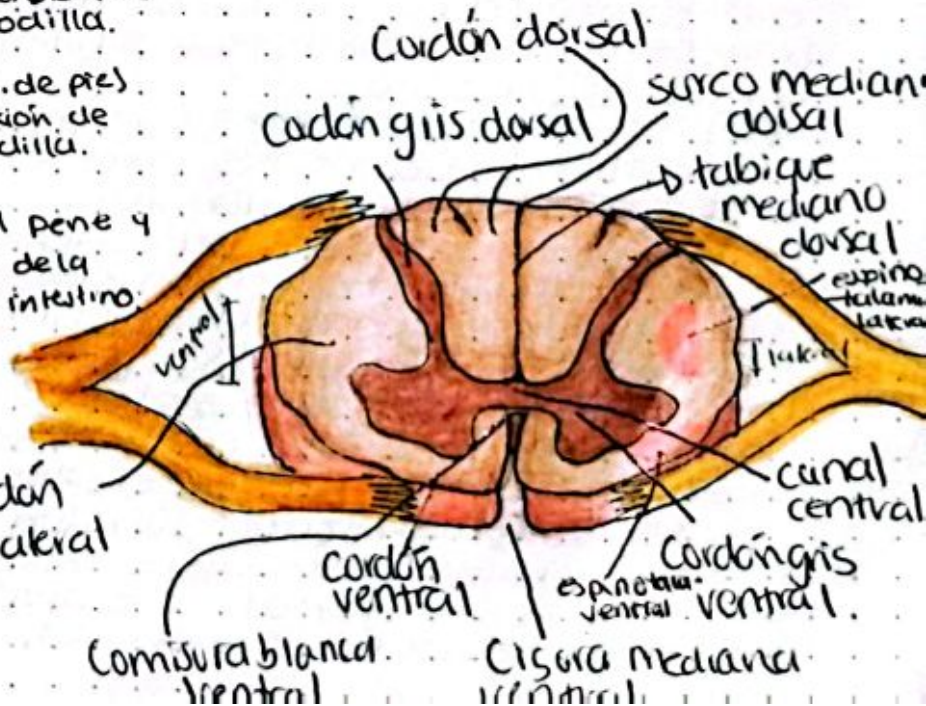 odilla.
. de pies
ción de
dilla.
pene y
de la
intestino.
Cordón dorsal
surco median
dorsal
Cadón gris dorsal
tabique
mediano
dorsal
espino
talam
latera
ventral
lateral
dón
ateral
canal
central
Cordón
ventral
Cordón gris
ventral
espinotala.
ventral
Comisura blanca
ventral
Cisura mediana
ventral